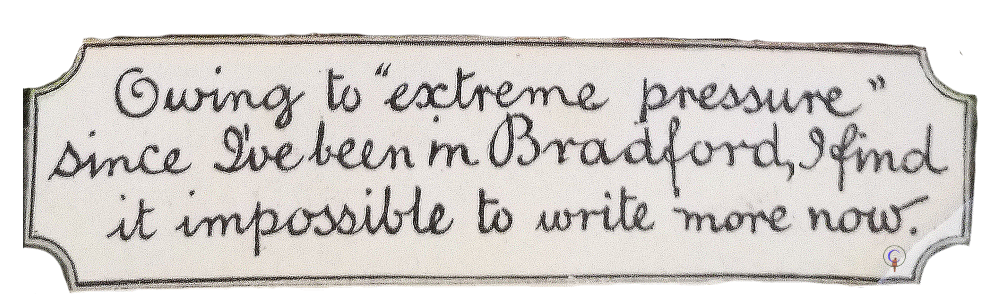 Owing to “extreme pressure”
since I've been in Bradford, I find
it impossible to write more now.